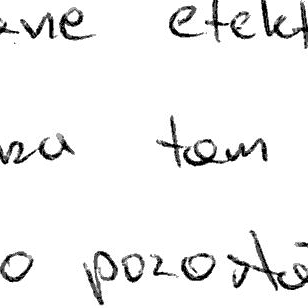 anie efekt
za tam
o pozosta